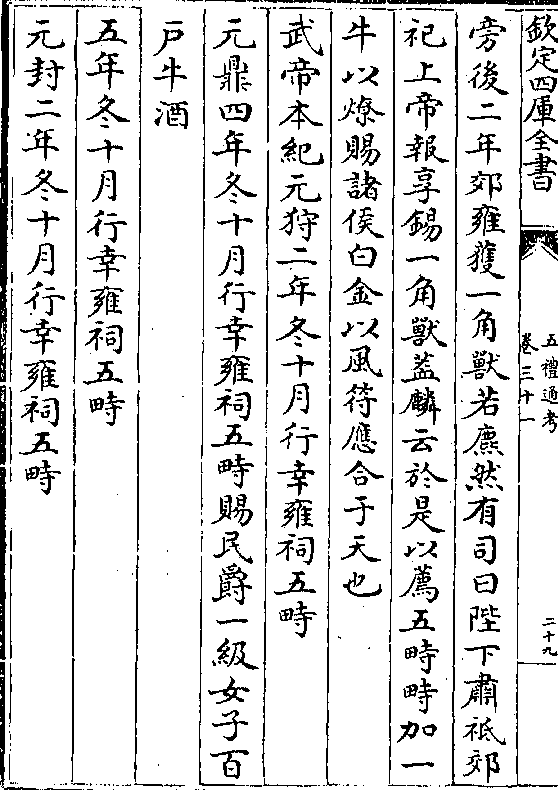 欽定四庫全書
五禮通考
卷三十一
二十九
旁後二年郊雍獲一角獸若麃然有司曰陛下肅祗郊
祀上帝報享錫一角獸蓋麟云於是以薦五畤畤加一
牛以燎賜諸侯白金以風符應合于天也
武帝本紀元狩二年冬十月行幸雍祠五畤
元鼎四年冬十月行幸雍祠五畤賜民爵一級女子百
戸牛酒
五年冬十月行幸雍祠五畤
元封二年冬十月行幸雍祠五畤